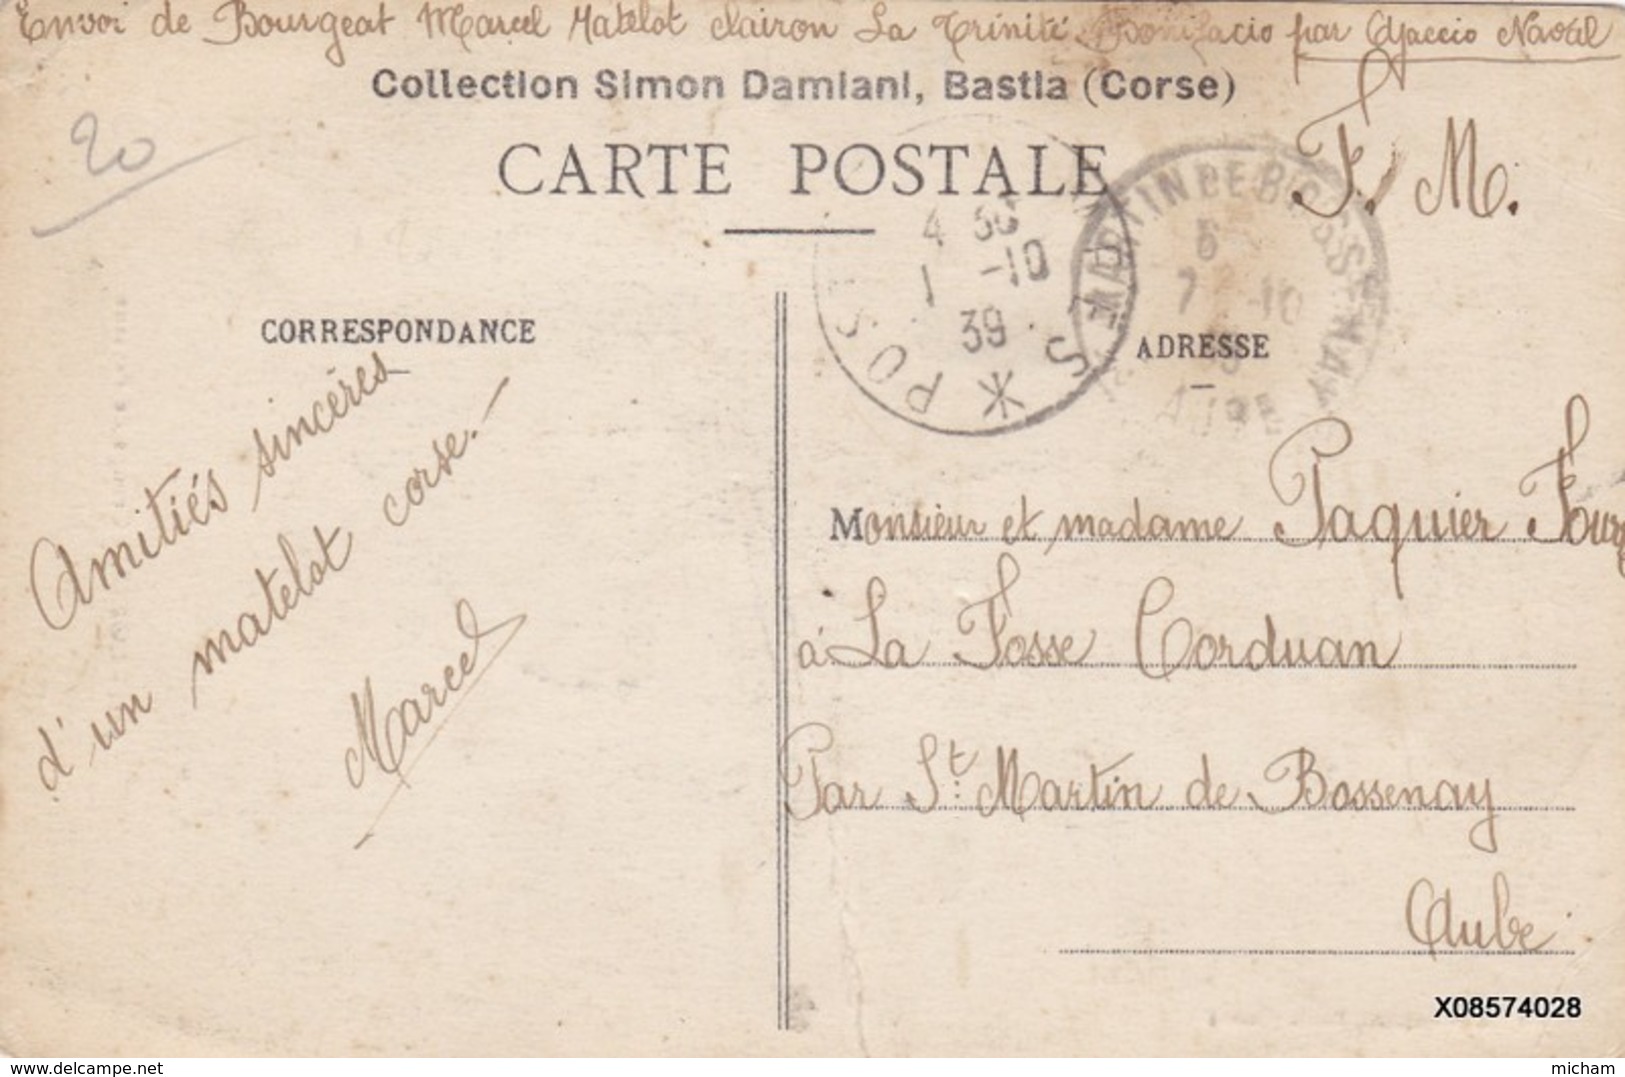 Envoi de Bourgeat Marcel Matelot clairon La Trinité Bonifacio par Ajaccio Naval
Collection Simon Damiani, Bastia (Corse)
20
CARTE POSTALE
F. M.
4 30
1 -10
39
POS
MARTIN DE BOSSENAY
5
7 -10
AUBE
CORRESPONDANCE
ADRESSE
Amitiés sincères
d'un matelot corse.-
Marcel
Monsieur et madame Paquier
à La Fosse Corduan
Par St. Martin de Bossenay
Aube
X08574028
www.delcampe.net
micham